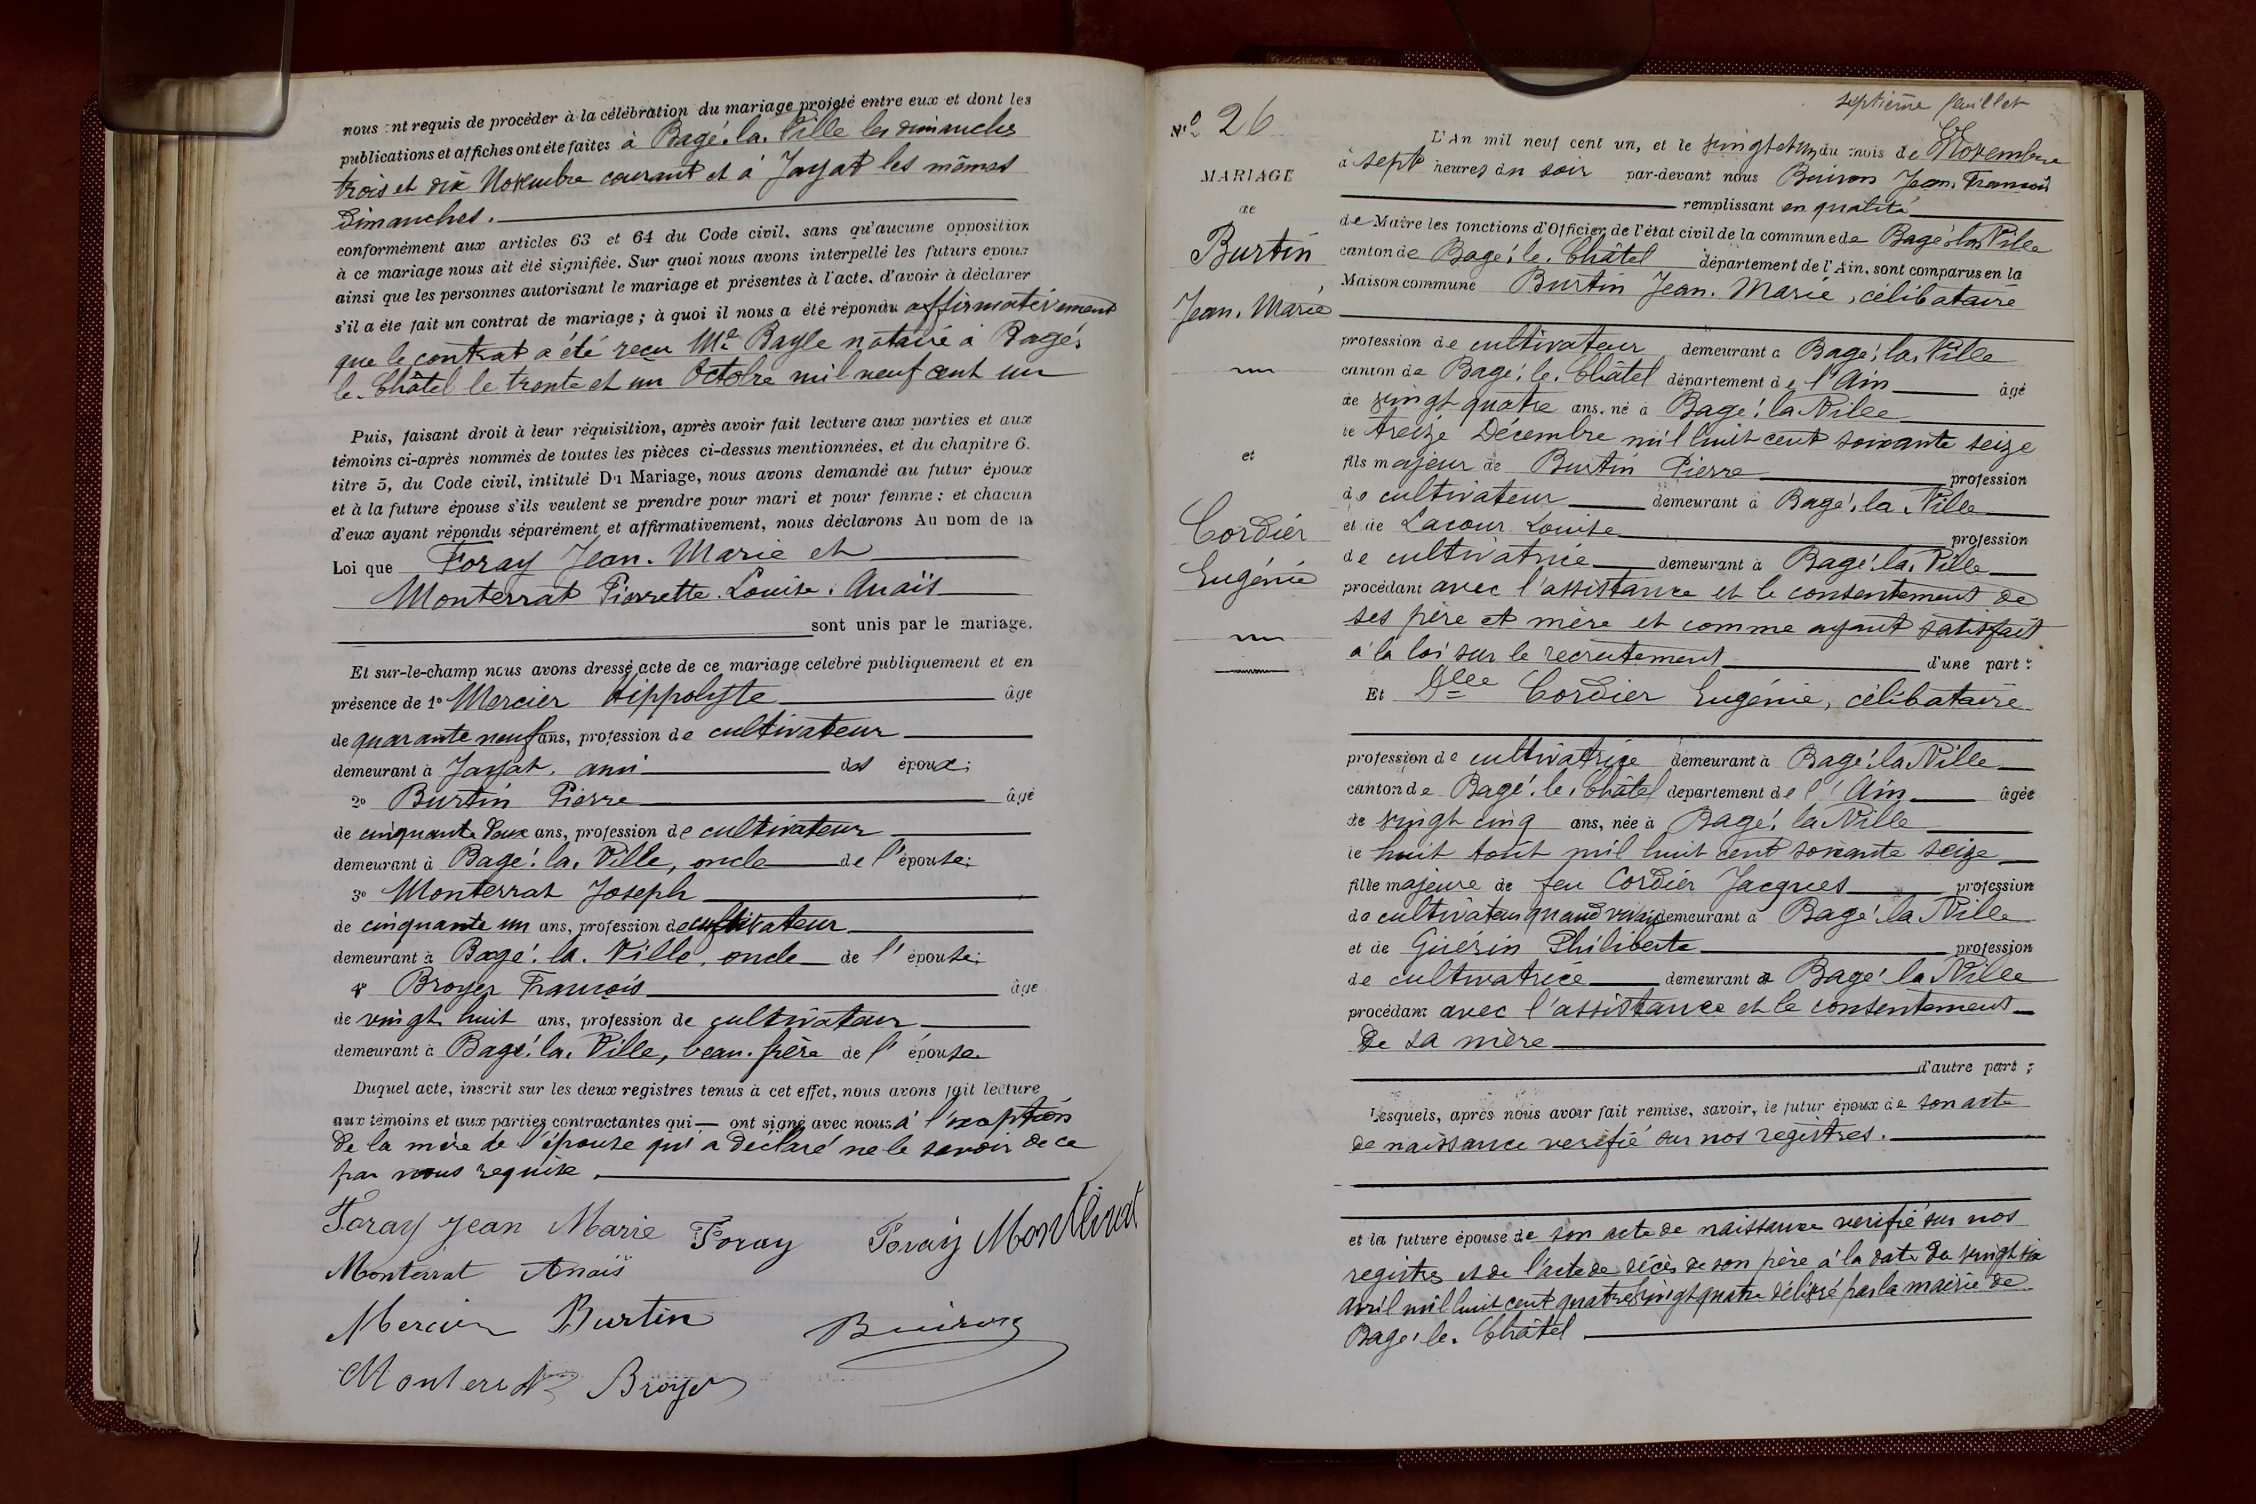 nous ont requis de procéder à la célébration du mariage projeté entre eux et dont les
publications et affiches ont été faites à Bagé-la-Ville les dimanches
trois et dix Novembre courant et à Jayat les mêmes
Dimanches.
conformément aux articles 63 et 64 du Code civil, sans qu'aucune opposition
à ce mariage nous ait été signifiée. Sur quoi nous avons interpellé les futurs époux
ainsi que les personnes autorisant le mariage et présentes à l'acte, d'avoir à déclarer
s'il a été fait un contrat de mariage ; à quoi il nous a été répondu affirmativement
que le contrat a été reçu Me Bayle notaire à Bagé-
le-Châtel le trente et un Octobre mil neuf cent un
Puis, faisant droit à leur réquisition, après avoir fait lecture aux parties et aux
témoins ci-après nommés de toutes les pièces ci-dessus mentionnées, et du chapitre 6.
titre 5, du Code civil, intitulé Du Mariage, nous avons demandé au futur époux
et à la future épouse s'ils veulent se prendre pour mari et pour femme : et chacun
d'eux ayant répondu séparément et affirmativement, nous déclarons Au nom de la
Loi que Foray Jean-Marie et
Monterrat Pierrette-Louise-Anaïs
sont unis par le mariage.
Et sur-le-champ nous avons dressé acte de ce mariage célébré publiquement et en
présence de 1º Mercier Hippolyte âgé
de quarante neuf ans, profession de cultivateur
demeurant à Jayat, ami des époux;
2º Burtin Pierre âgé
de cinquante deux ans, profession de cultivateur
demeurant à Bagé-la-Ville, oncle de l'épouse;
3º Monterrat Joseph
de cinquante un ans, profession de cultivateur
demeurant à Bagé-la-Ville, oncle de l'épouse;
4º Broyer François âgé
de vingt huit ans, profession de cultivateur
demeurant à Bagé-la-Ville, beau-frère de l'épouse
Duquel acte, inscrit sur les deux registres tenus à cet effet, nous avons fait lecture
aux témoins et aux parties contractantes qui — ont signé avec nous à l'exception
de la mère de l'épouse qui a déclaré ne le savoir de ce
par nous requise.
Foray Jean Marie Foray Foray Monterrat
Monterrat Anaïs
Mercier Burtin Buiron
Monterrat Broyer
septième feuillet
Nº 26
MARIAGE
de
Burtin
Jean-Marie
et
Cordier
Eugénie
L'An mil neuf cent un, et le vingt et un du mois de Novembre
à sept heures du soir par-devant nous Buiron Jean-François
remplissant en qualité
de Maire les fonctions d'Officier de l'état civil de la commune de Bagé-la-Ville
canton de Bagé-le-Châtel département de l'Ain, sont comparus en la
Maison commune Burtin Jean-Marie, célibataire
profession de cultivateur demeurant à Bagé-la-Ville
canton de Bagé-le-Châtel département de l'Ain âgé
de vingt quatre ans, né à Bagé-la-Ville
le treize Décembre mil huit cent soixante seize
fils majeur de Burtin Pierre profession
de cultivateur demeurant à Bagé-la-Ville
et de Lacour Louise profession
de cultivatrice demeurant à Bagé-la-Ville
procédant avec l'assistance et le consentement de
ses père et mère et comme ayant satisfait
à la loi sur le recrutement d'une part ;
Et Dlle Cordier Eugénie, célibataire
profession de cultivatrice demeurant à Bagé-la-Ville
canton de Bagé-le-Châtel département de l'Ain âgée
de vingt cinq ans, née à Bagé-la-Ville
le huit Août mil huit cent soixante seize
fille majeure de feu Cordier Jacques profession
de cultivateur quand vivait demeurant à Bagé-la-Ville
et de Guérin Philiberte profession
de cultivatrice demeurant à Bagé-la-Ville
procédant avec l'assistance et le consentement
de sa mère
d'autre part ;
Lesquels, après nous avoir fait remise, savoir, le futur époux de son acte
de naissance verifié sur nos registres.
et la future épouse de son acte de naissance verifié sur nos
registres et de l'acte de décès de son père à la date du vingt six
Avril mil huit cent quatre vingt quatre délivré par la mairie de
Bagé-le-Châtel